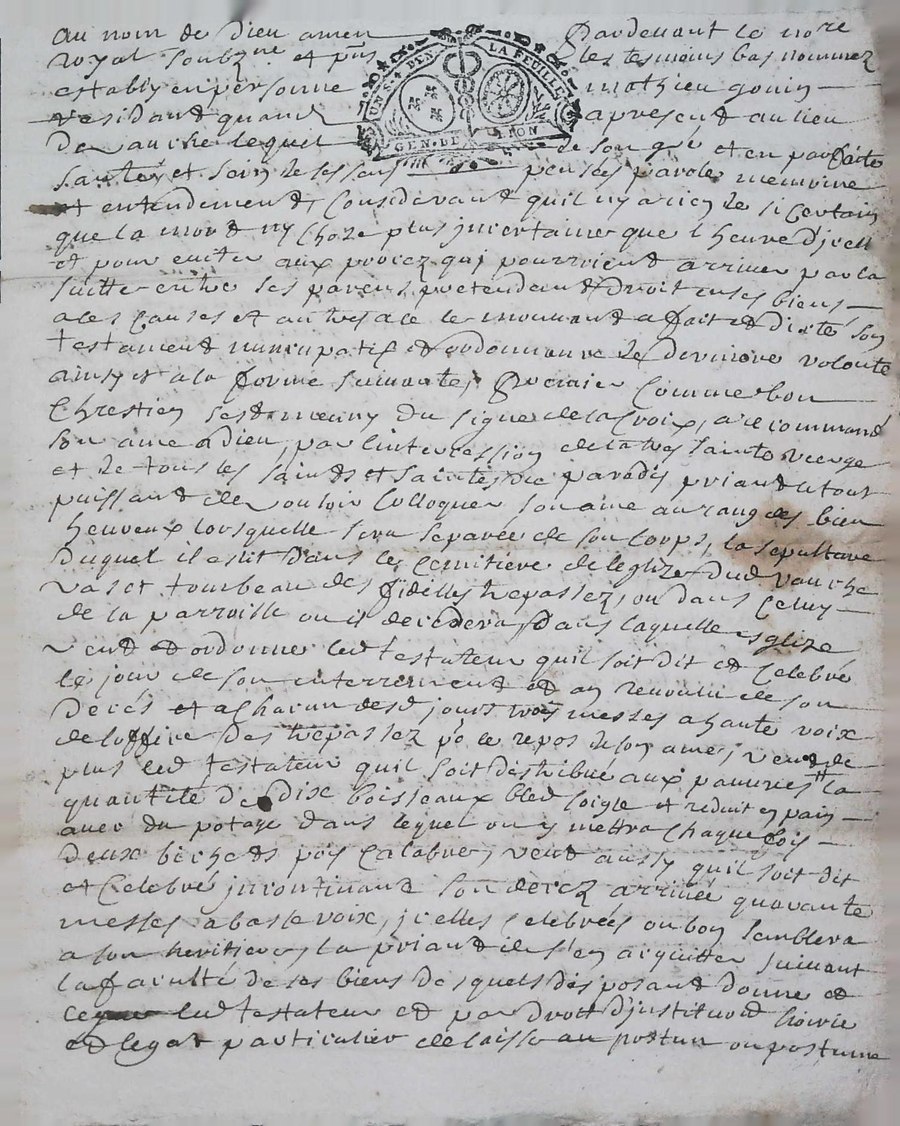 au nom de Dieu amen Pardevant le no.re
royal soubz.ne et p.ns les tesmoins bas nommez
UN S. 4 DEN. LA FEUILLE
estably en personne mathieu gonin
residant quand apresent au lieu
GEN. DE LYON
De vauche lequel de son gré et en parfaite
santé, et sain de ses sens pensées parole memoire
et entendement, Considerant quil ny a rien de si Certain
que la mort ny Choze plus jncertaine que lheure djcell
et pour eviter aux procez qui pourroient arriver par la
suitte entre ses parens pretendant droit en ses biens
a les Causes et autres a ce le mouvant a fait et dicté son
testament nuncupatif et ordonnance de derniere volonté
ainsy et a la forme suivante, Premier Comme bon
Chrestien sest muny du signe de la Croix, a recommandé
son ame a Dieu, par lintercession de la tres sainte vierge
et de tous les saints et saintes de paradis priant le tout
puissant de vouloir Colloquer son ame au rang des bien
heureux lorsquelle sera separée de son Corps, la sepulture
Duquel il eslit dans le Cemitiere de leglize dud vauche
vas et tombeau des fidelles trepassez, ou dans Celuy
de la parroisse ou il decedera, dans laquelle esglize
veut et ordonne led testateur quil soit dit et Celebré
le jour de son enterrement et au revolu de son
Decés et a chacun desd jours trois messes a haute voix
de loffice des trepassez po le repos de son ame, veut de
plus led testateur quil soit distribué aux pauvres la
quantité de dix boisseaux bled soigle et reduit en pain
avec du potage dans lequel on y mettra Chaque fois
Deux bichets pois Calabre, veut aussy quil soit dit
et Celebré jncontinant son decez arrivée quarante
messes a basse voix, jcelles Celebrées ou bon semblera
a son heritiere, la priant de s'en acquitter suivant
la faculté de ses biens desquels disposant donne et
legue led testateur et par droit djnstitution hoirie
et legat particulier delaisse au postun ou postume